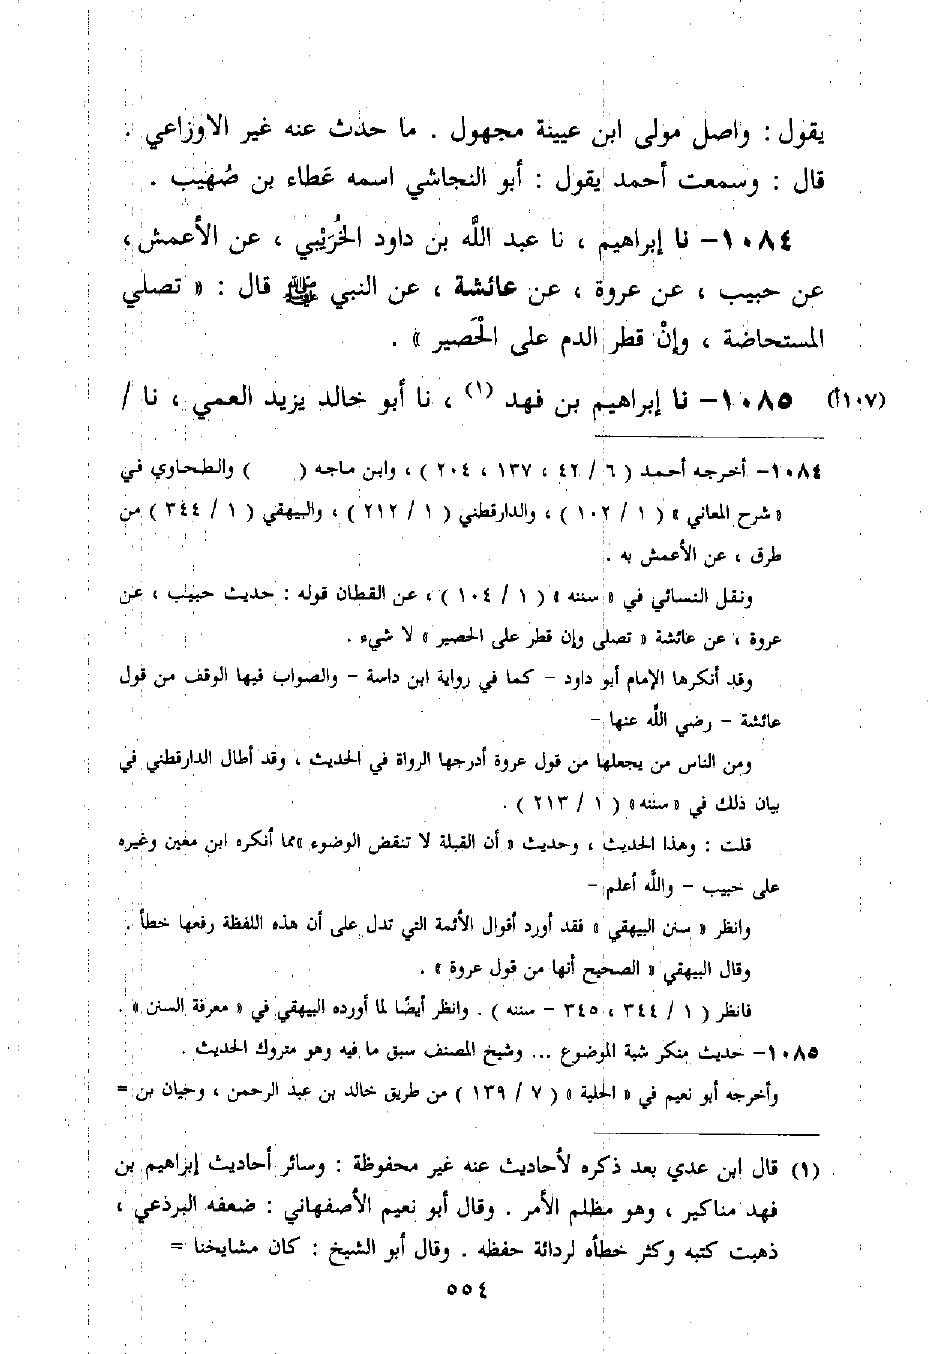 يقول : واصل مولى ابن عيينة مجهول . ما حدث عنه غير الاوزاعي .
قال : وسمعت أحمد يقول : أبو النجاشي اسمه عَطاء بن صُهيب .
١٠٨٤- نا إبراهيم ، نا عبد الله بن داود الخُرَيْبي ، عن الأعمش ،
عن حبيب ، عن عروة ، عن عائشة ، عن النبي ﷺ قال : « تصلي
المستحاضة ، وإنْ قطر الدم على الْحَصير » .
(١٠٧أ) ١٠٨٥- نا إبراهيم بن فهد (١) ، نا أبو خالد يزيد العمي ، نا /
١٠٨٤- أخرجه أحمد ( ٦ / ٤٢ ، ١٣٧ ، ٢٠٤ ) ، وابن ماجه ( ) والطحاوي في
« شرح المعاني » ( ١ / ١٠٢ ) ، والدارقطني ( ١ / ٢١٢ ) ، والبيهقي ( ١ / ٣٤٤ ) من
طرق ، عن الأعمش به .
ونقل النسائي في « سننه » ( ١ / ١٠٤ ) ، عن القطان قوله : حديث حبيب ، عن
عروة ، عن عائشة « تصلى وإن قطر على الحصير » لا شيء .
وقد أنكرها الإمام أبو داود - كما في رواية ابن داسة - والصواب فيها الوقف من قول
عائشة - رضي الله عنها -
ومن الناس من يجعلها من قول عروة أدرجها الرواة في الحديث ، وقد أطال الدارقطني في
بيان ذلك في « سننه » ( ١ / ٢١٣ ) .
قلت : وهذا الحديث ، وحديث « أن القبلة لا تنقض الوضوء » مما أنكره ابن معين وغيره
على حبيب - والله أعلم -
وانظر « سنن البيهقي » فقد أورد أقوال الأئمة التي تدل على أن هذه اللفظة رفعها خطأ .
وقال البيهقي « الصحيح أنها من قول عروة » .
فانظر ( ١ / ٣٤٤ ، ٣٤٥ - سننه ) . وانظر أيضًا لما أورده البيهقي في « معرفة السنن » .
١٠٨٥- حديث منكر شبة الموضوع ... وشيخ المصنف سبق ما فيه وهو متروك الحديث .
وأخرجه أبو نعيم في « الحلية » ( ٧ / ١٣٩ ) من طريق خالد بن عبد الرحمن ، وحيان بن =
(١) قال ابن عدي بعد ذكره لأحاديث عنه غير محفوظة : وسائر أحاديث إبراهيم بن
فهد مناكير ، وهو مظلم الأمر . وقال أبو نعيم الأصفهاني : ضعفه البرذعي ،
ذهبت كتبه وكثر خطأه لردائة حفظه . وقال أبو الشيخ : كان مشايخنا =
٥٥٤